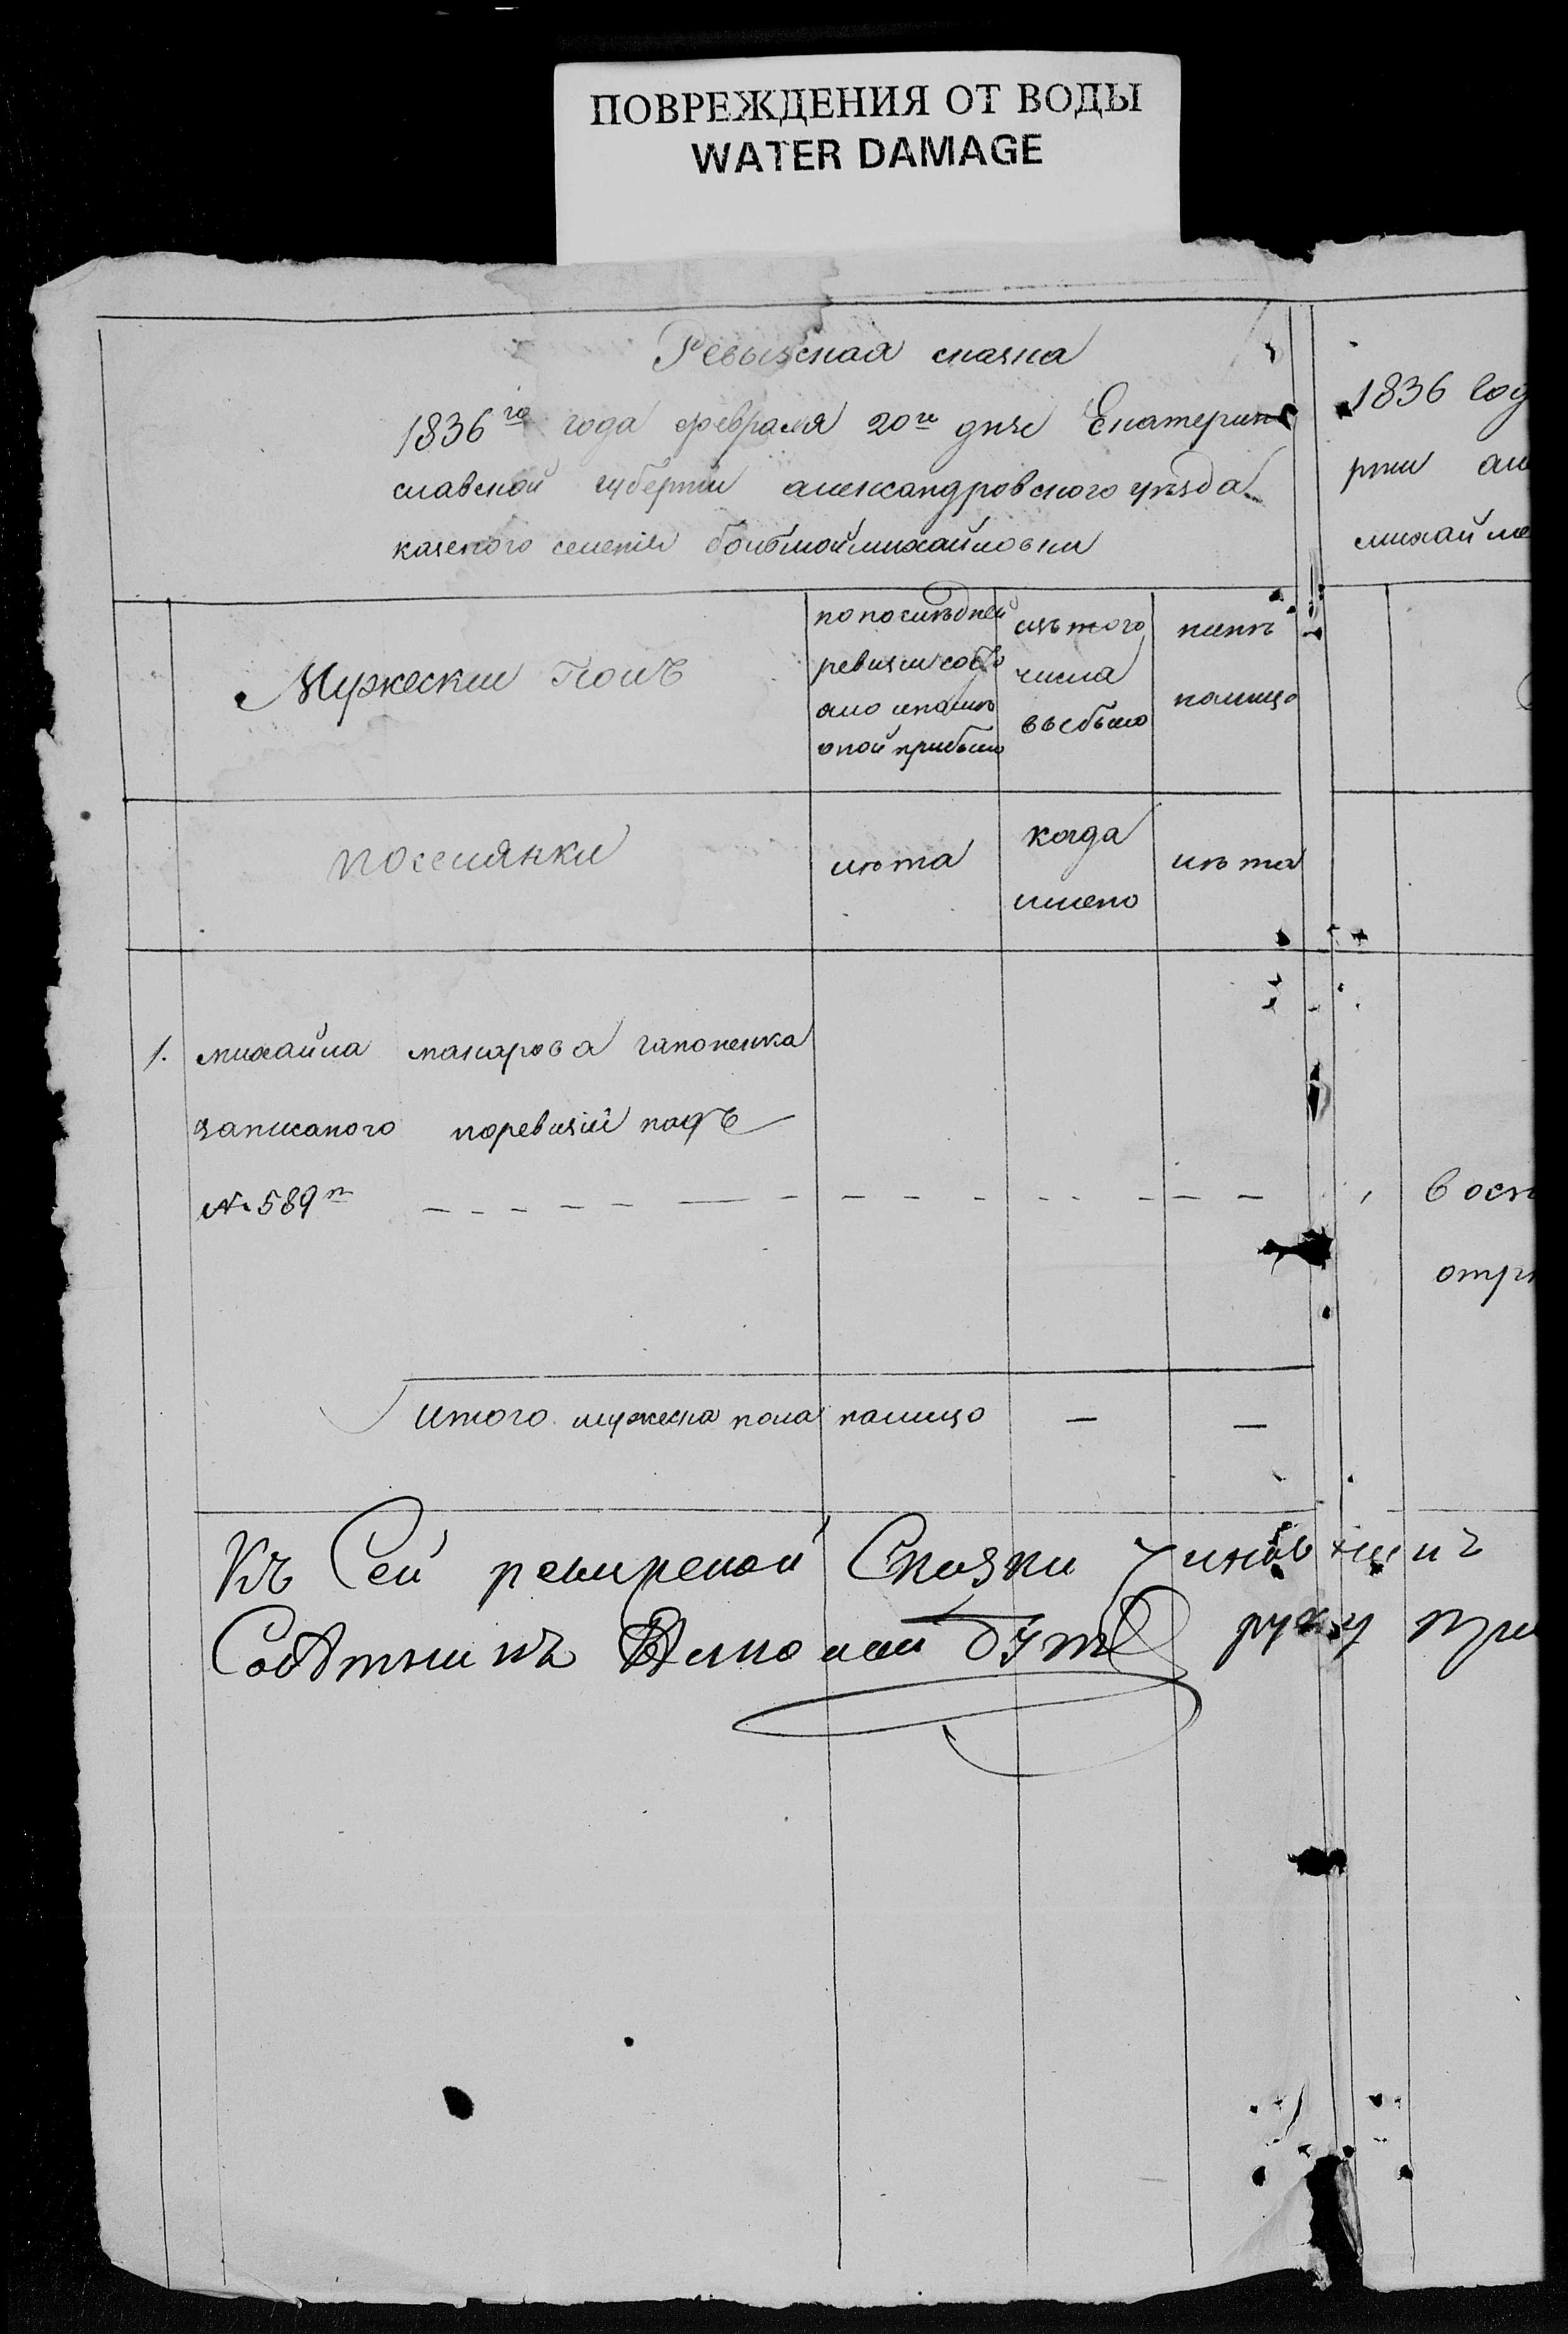 ПОВРЕЖДЕНИЯ ОТ ВОДЫ
WATER DAMAGE
Ревызская сказка
1836го года февраля 20го дня Екатерино
славской губернии александровского уѣзда
казеного селения большой михайловки
1836 год
рнии але
михайло
Мужеский Полъ
по послѣдней
ревизии состо
ало и после
оной прибыло
изъ того
числа
выбыло
ныне
налицо
поселянки
лѣта
когда
имено
лѣта
1. михайла макарова гапоненка
записаного поревизіи подъ
№ 589м
итого мужеска пола налицо — —
Къ Сей ревизской Сказки
руку при